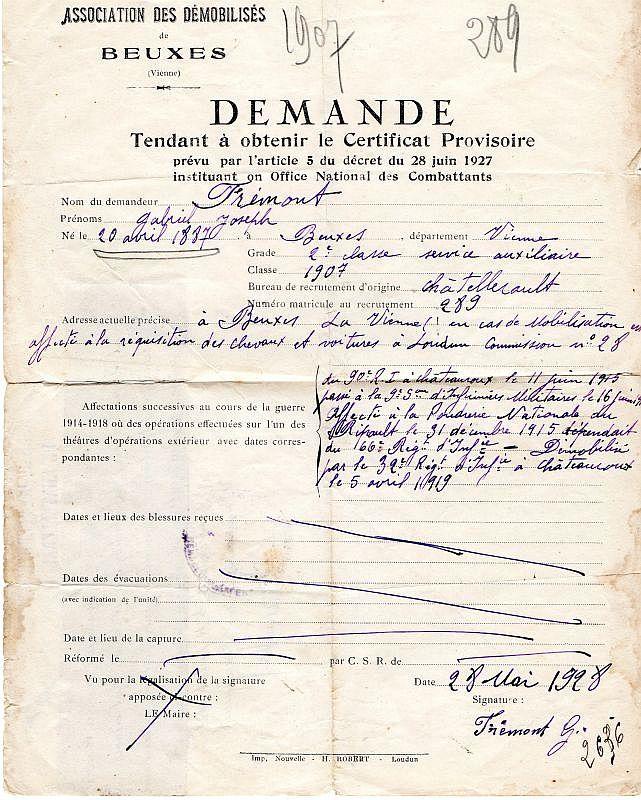 ASSOCIATION DES DÉMOBILISÉS
de
BEUXES
(Vienne)
1907
289
DEMANDE
Tendant à obtenir le Certificat Provisoire
prévu par l'article 5 du décret du 28 juin 1927
instituant on Office National des Combattants
Nom du demandeur Frémont
Prénoms Gabriel Joseph
Né le 20 avril 1887 à Beuxes, département Vienne
Grade 2e classe service auxiliaire
Classe 1907
Bureau de recrutement d'origine Châtellerault
Numéro matricule au recrutement 289
Adresse actuelle précise à Beuxes La Vienne (en cas de Mobilisation est
affecté à la réquisition des chevaux et voitures à Loudun Commission n° 28
Affectations successives au cours de la guerre
1914-1918 où des opérations effectuées sur l'un des
théâtres d'opérations extérieur avec dates corres-
pondantes :
du 90e R.I à Chateauroux le 11 juin 1915
passé à la 9e Son d'Infirmiers Militaires le 16 juin
affecté à la Poudrerie Nationale du
Ripault le 31 décembre 1915 dépendait
du 166e Régt d'Infie — Démobilisé
par le 32e Régt d'Infie à Chateauroux
le 5 avril 1919
Dates et lieux des blessures reçues
Dates des évacuations
(avec indication de l'unité)
Date et lieu de la capture
Réformé le par C. S. R. de
Vu pour la légalisation de la signature
apposée ci-contre :
LE Maire :
Date 28 Mai 1928
Signature :
Frémont G.
2636
Imp. Nouvelle - H. ROBERT - Loudun